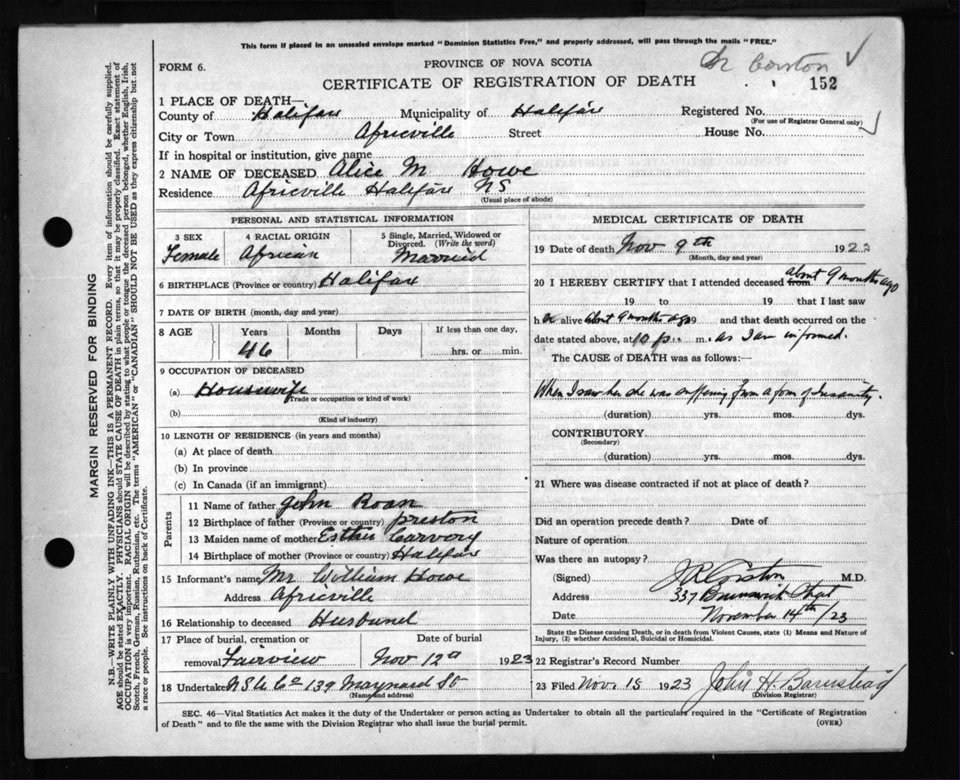 This form if placed in an unsealed envelope marked "Dominion Statistics Free," and properly addressed, will pass through the mails "FREE."
FORM 6.
PROVINCE OF NOVA SCOTIA
CERTIFICATE OF REGISTRATION OF DEATH
Dr Corston
152
1 PLACE OF DEATH—
County of Halifax Municipality of Halifax Registered No.
(For use of Registrar General only)
City or Town Africville Street House No.
If in hospital or institution, give name
2 NAME OF DECEASED Alice M Howe
Residence Africville Halifax NS
(Usual place of abode)
PERSONAL AND STATISTICAL INFORMATION
3 SEX 4 RACIAL ORIGIN 5 Single, Married, Widowed or Divorced. (Write the word)
Female African Married
6 BIRTHPLACE (Province or country) Halifax
7 DATE OF BIRTH (month, day and year)
8 AGE Years Months Days If less than one day,
46 hrs. or min.
9 OCCUPATION OF DECEASED
(a) Housewife
(Trade or occupation or kind of work)
(b)
(Kind of industry)
10 LENGTH OF RESIDENCE (in years and months)
(a) At place of death
(b) In province
(c) In Canada (if an immigrant)
Parents
11 Name of father John Roan
12 Birthplace of father (Province or country) Preston
13 Maiden name of mother Esther Carvery
14 Birthplace of mother (Province or country) Halifax
15 Informant's name Mr William Howe
Address Africville
16 Relationship to deceased Husband
17 Place of burial, cremation or removal Fairview
Date of burial Nov 12 1923
18 Undertaker N S U Co 139 Maynard St
(Name and address)
MEDICAL CERTIFICATE OF DEATH
19 Date of death Nov 9th 192
(Month, day and year)
20 I HEREBY CERTIFY that I attended deceased from about 9 months ago
19 to 19 that I last saw
her alive about 9 months ago 19 and that death occurred on the
date stated above, at 10 p. m. as I am informed.
The CAUSE of DEATH was as follows:—
When I saw her she was suffering from a form of Insanity.
(duration) yrs. mos. dys.
CONTRIBUTORY
(Secondary)
(duration) yrs. mos. dys.
21 Where was disease contracted if not at place of death?
Did an operation precede death? Date of
Nature of operation
Was there an autopsy?
(Signed) J R Corston M.D.
Address 337 Brunswick
Date November 14th/23
State the Disease causing Death, or in death from Violent Causes, state (1) Means and Nature of Injury, (2) whether Accidental, Suicidal or Homicidal.
22 Registrar's Record Number
23 Filed Nov 15 1923 John H. Barnstead
(Division Registrar)
SEC. 46—Vital Statistics Act makes it the duty of the Undertaker or person acting as Undertaker to obtain all the particulars required in the "Certificate of Registration
of Death" and to file the same with the Division Registrar who shall issue the burial permit.
(OVER)
MARGIN RESERVED FOR BINDING
N.B.—WRITE PLAINLY WITH UNFADING INK—THIS IS A PERMANENT RECORD. Every item of information should be carefully supplied.
AGE should be stated EXACTLY. PHYSICIANS should STATE CAUSE OF DEATH in plain terms, so that it may be properly classified. Exact statement of
OCCUPATION is very important. RACIAL ORIGIN will be described by stating to what people or tongue the deceased person belonged, whether English, Irish,
Scotch, French, German, Russian, Ruthenian, etc. The terms "AMERICAN" or "CANADIAN" SHOULD NOT BE USED as they express citizenship but not
a race or people. See instructions on back of Certificate.